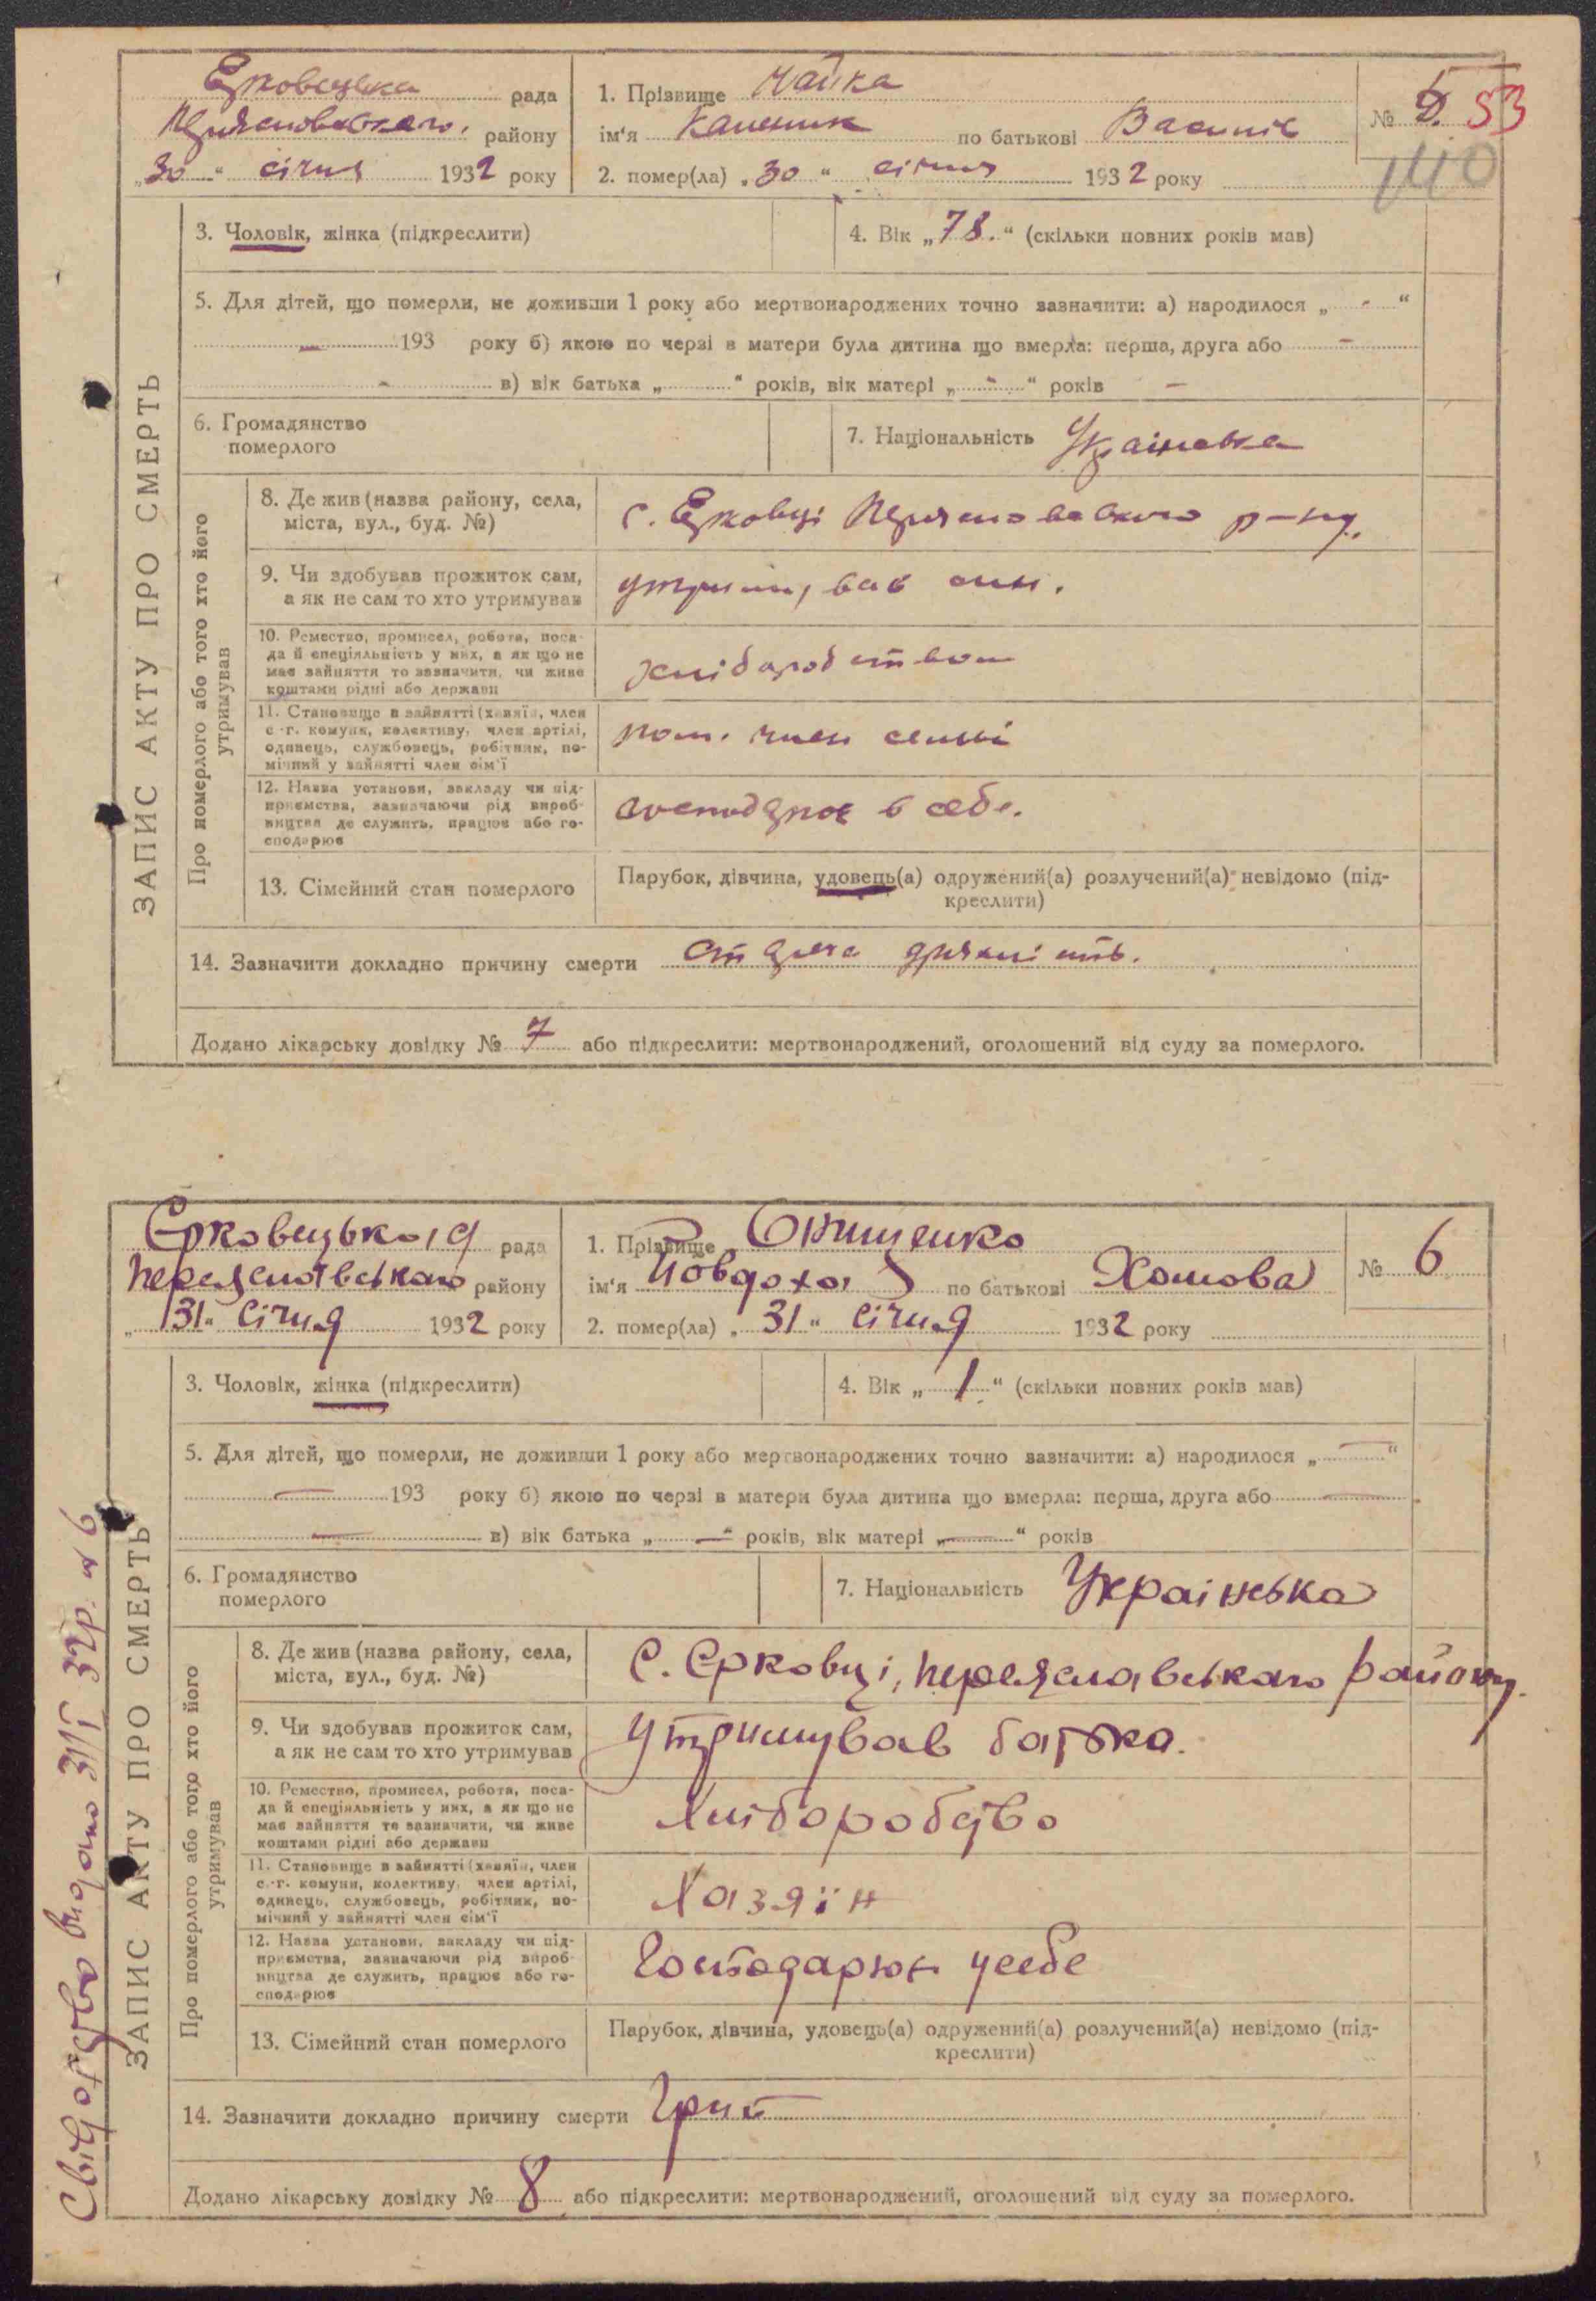 Ерковецька рада
Переяславського району
„30“ січня 1932 року
1. Прізвище Чайка
ім‘я Каленик по батькові Васильів
2. помер(ла) „30“ січня 1932 року
№ 5. 53
140
3. Чоловік, жінка (підкреслити)
4. Вік „78.“ (скільки повних років мав)
5. Для дітей, що померли, не доживши 1 року або мертвонароджених точно зазначити: а) народилося „ - “
— 193 року б) якою по черзі в матери була дитина що вмерла: перша, друга або —
- в) вік батька „ “ років, вік матері „ - “ років —
6. Громадянство
померлого
7. Національність Українська
ЗАПИС АКТУ ПРО СМЕРТЬ
Про померлого або того хто його
утримував
8. Де жив (назва району, села,
міста, вул., буд. №)
с. Ерковці Переяславського р-ну.
9. Чи здобував прожиток сам,
а як не сам то хто утримував
утримував син.
10. Ремество, промисел, робота, поса-
да й спеціяльність у них, а як що не
має зайняття то зазначити, чи живе
коштами рідні або держави
хліборобством
11. Становище в зайнятті (хазяїн, член
с.-г. комуни, колективу, член артілі,
одинець, службовець, робітник, по-
мічний у зайнятті член сім‘ї
пом. член семьі
12. Назва установи, закладу чи під-
приємства, зазначаючи рід вироб-
ництва де служить, працює або го-
сподарює
господарює в себе.
13. Сімейний стан померлого
Парубок, дівчина, удовець(а) одружений(а) розлучений(а) невідомо (під-
креслити)
14. Зазначити докладно причину смерти
Додано лікарську довідку № 7 або підкреслити: мертвонароджений, оголошений від суду за померлого.
Єрковецька рада
Переяславського району
„31“ січня 1932 року
1. Прізвище Онищенко
ім‘я Йовдоха по батькові Хомова
2. помер(ла) „31“ січня 1932 року
№ 6
3. Чоловік, жінка (підкреслити)
4. Вік „1“ (скільки повних років мав)
5. Для дітей, що померли, не доживши 1 року або мертвонароджених точно зазначити: а) народилося „ — “
— 193 року б) якою по черзі в матери була дитина що вмерла: перша, друга або —
— в) вік батька „ — “ років, вік матері „ — “ років
6. Громадянство
померлого
7. Національність Українська
ЗАПИС АКТУ ПРО СМЕРТЬ
Свідоцтво видано 31/I 32р. № 6
Про померлого або того хто його
утримував
8. Де жив (назва району, села,
міста, вул., буд. №)
С. Єрковці, Переяславського району.
9. Чи здобував прожиток сам,
а як не сам то хто утримував
утримував батько.
10. Ремество, промисел, робота, поса-
да й спеціяльність у них, а як що не
має зайняття то зазначити, чи живе
коштами рідні або держави
Хліборобство
11. Становище в зайнятті (хазяїн, член
с.-г. комуни, колективу, член артілі,
одинець, службовець, робітник, по-
мічний у зайнятті член сім‘ї
Хазяїн
12. Назва установи, закладу чи під-
приємства, зазначаючи рід вироб-
ництва де служить, працює або го-
сподарює
Господарює у себе
13. Сімейний стан померлого
Парубок, дівчина, удовець(а) одружений(а) розлучений(а) невідомо (під-
креслити)
14. Зазначити докладно причину смерти Грип
Додано лікарську довідку № 8 або підкреслити: мертвонароджений, оголошений від суду за померлого.